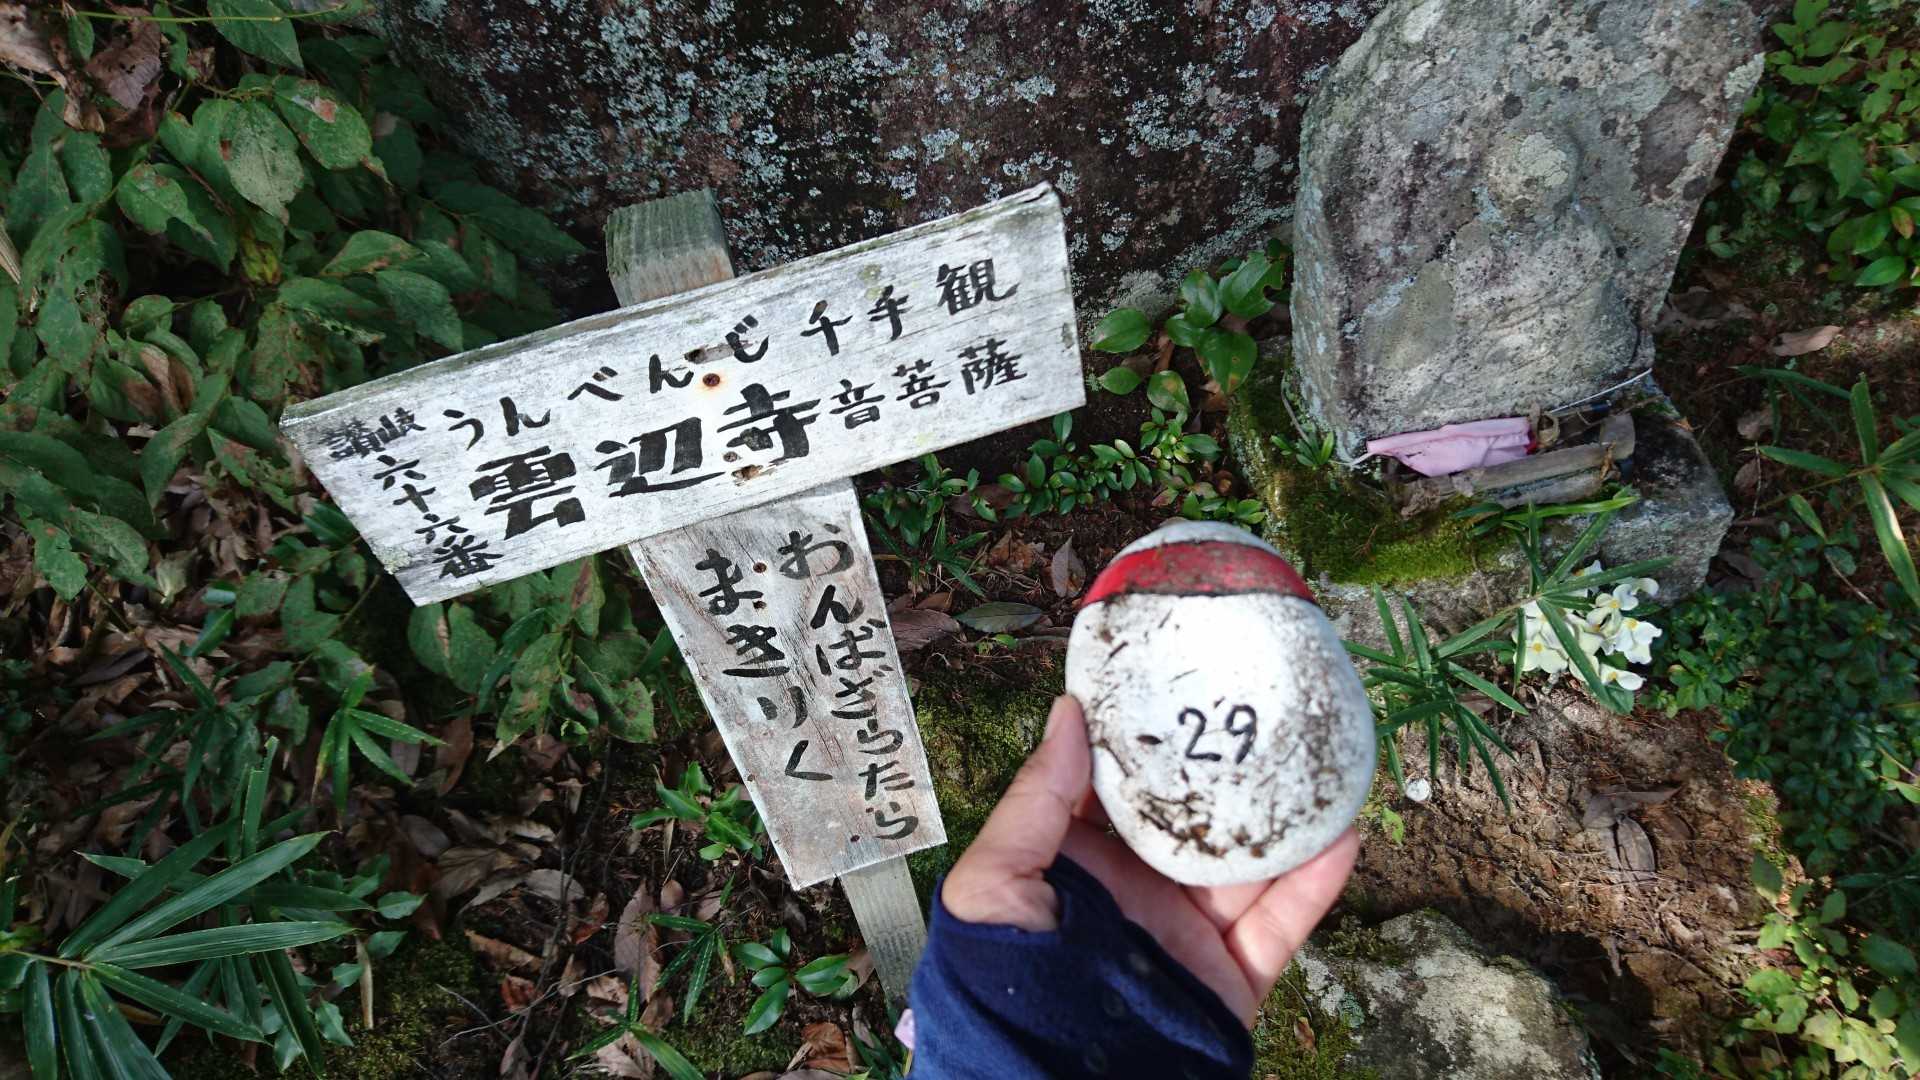 讃岐六十六番
うんぺんじ
雲辺寺
千手観
音菩薩
おんばざらたら
まきりく
29